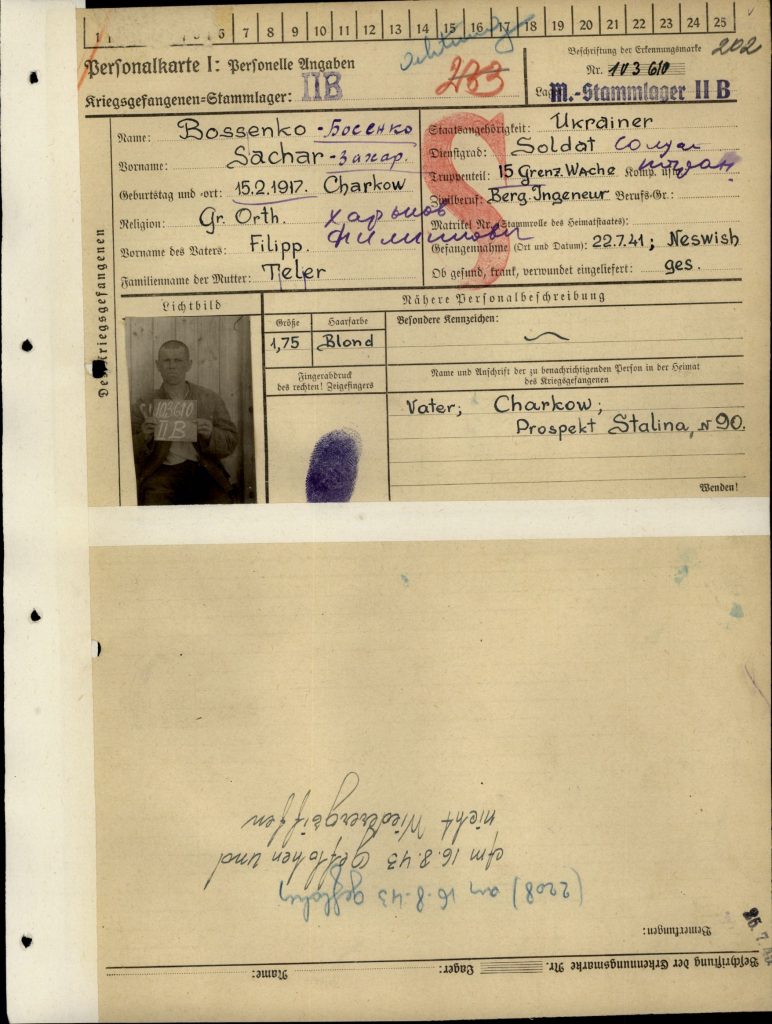 6 7 8 9 10 11 12 13 14 15 16 17 18 19 20 21 22 23 24 25
Personalkarte I: Personelle Angaben
Kriegsgefangenen=Stammlager: II B
233
Beschriftung der Erkennungsmarke
202
Nr. 103 610
Lag M.-Stammlager II B
Des Kriegsgefangenen
Name: Bossenko - Босенко
Vorname: Sachar - Захар.
Geburtstag und -ort: 15.2.1917. Charkow
Харьков
Religion: Gr. Orth.
Vorname des Vaters: Filipp.
Familienname der Mutter:
Staatsangehörigkeit: Ukrainer
Dienstgrad: Soldat
Truppenteil: 15 Grenz. Wache Komp. usw.
Zivilberuf: Berg. Ingeneur Berufs-Gr.:
Matrikel Nr. (Stammrolle des Heimatstaates):
Gefangennahme (Ort und Datum): 22.7.41; Neswish
Ob gesund, krank, verwundet eingeliefert: ges.
S
Lichtbild
103610
II B
Nähere Personalbeschreibung
Größe Haarfarbe
1,75 Blond
Besondere Kennzeichen:
Fingerabdruck
des rechten! Zeigefingers
Name und Anschrift der zu benachrichtigenden Person in der Heimat
des Kriegsgefangenen
Vater; Charkow;
Prospekt Stalina, N 90.
Wenden!
Beschriftung der Erkennungsmarke Nr. Lager: Name:
Bemerkungen:
(2208) am 16.8.43 geflohen
Am 16.8.43 Geflohen und
nicht Wiederergriffen